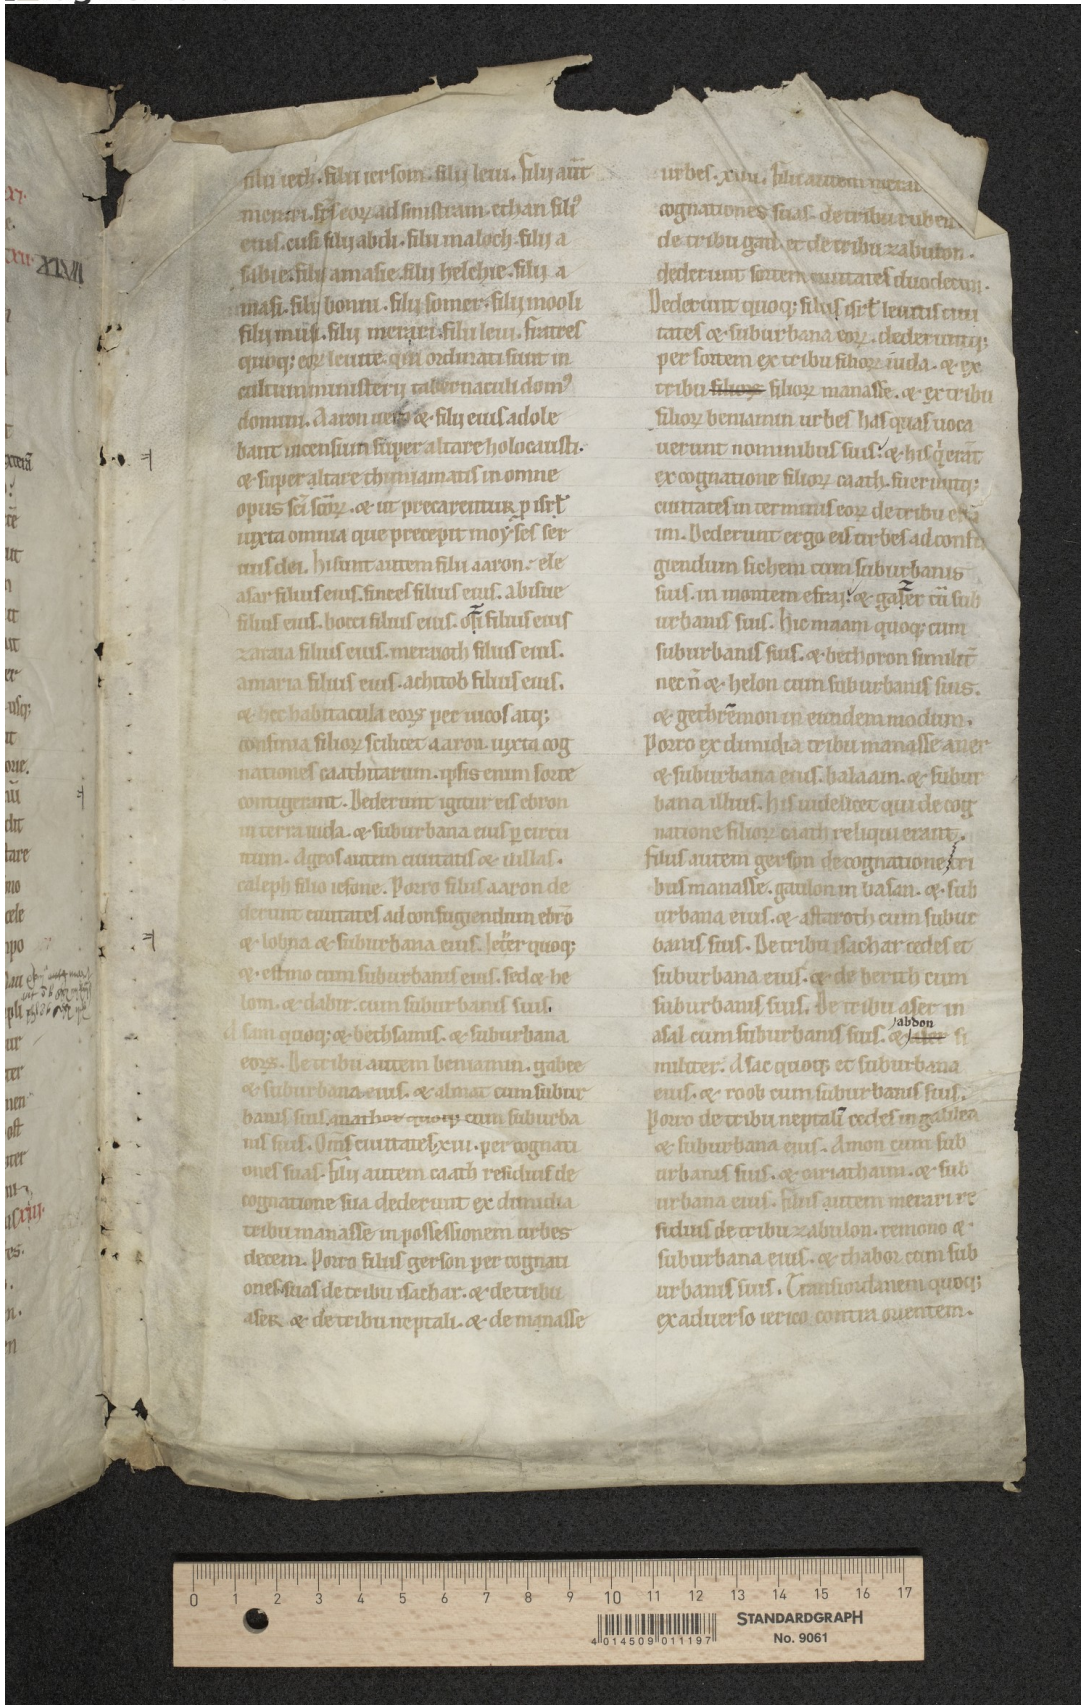 filii ieth. filii iersom. filii leui. Filii aut̄
merari. fr̄s eoꝝ ad sinistram. ethan fili᾽
eius. cusi filij abdi. filii maloch. filij a
sabie. filij amasie. filij helchie. filij a
masi. filij bonni. filij somer. filij mooli
filij musi. filij merari. filii leui. Fratres
quoq; eoꝝ leuite. qui ordinati sunt in
cultum ministerij tabernaculi dom᾽
domini. Aaron uero & filij eius adole
bant incensum super altare holocausti.
& super altare thimiamatis in omne
opus sc̄i sc̄oꝝ. & ut precarentur ꝓ isrł
iuxta omnia que precepit moyses ser
uus dei. hi sunt autem filii aaron. ele
asar filius eius. finees filius eius. abisue
filius eius. bocci filius eius. osi filius eius
zaraia filius eius. meraioth filius eius.
amaria filius eius. achitob filius eius.
& hec habitacula eoꝝ per uicos atq;
confinia filioꝝ scilicet aaron. iuxta cog
nationes caathitarum. ipsis enim sorte
contigerant. Dederunt igitur eis ebron
in terra iuda. & suburbana eius ꝑ circu
itum. Agros autem ciuitatis & uillas.
caleph filio iefone. Porro filiis aaron de
derunt ciuitates ad confugiendum ebrō
& lobna & suburbana eius. Ieter quoq;
& estimo cum suburbanis eius. sed & he
lom. & dabir. cum suburbanis suis.
Asam quoq; & bethsamis. & suburbana
eoꝝ. De tribu autem beniamin. gabee
& suburbana eius. & almat cum subur
banis suis. anathot quoq; cum suburba
nis suis. Om̄s ciuitates. xiii. per cognati
ones suas. Filij autem caath residuis de
cognatione sua dederunt ex dimidia
tribu manasse in possessionem urbes
decem. Porro filiis gerson per cognati
ones suas de tribu isachar. & de tribu
aser. & de tribu neptali. & de manasse
urbes. xiii. Filii autem merari
cognationes suas. de tribu ruben
de tribu gad. et de tribu zabulon.
dederunt sortem ciuitates duodecim.
Dederunt quoq; filij isrł leuitis ciui
tates & suburbana eoꝝ. dederuntq;
per sortem ex tribu filioꝝ iuda. & ex
tribu filioꝝ filioꝝ manasse. & ex tribu
filioꝝ beniamin urbes has quas uoca
uerunt nominibus suis. & his q̇ erāt
ex cognatione filioꝝ caath. fueruntq;
ciuitates in terminis eoꝝ de tribu
im. Dederunt ergo eis urbes ad confu
giendum sichem cum suburbanis
suis. in montem efraȳ. & gazer cū sub
urbanis suis. hiemaam quoq; cum
suburbanis suis. & bethoron similit̄
nec n̄ & helon cum suburbanis suis.
& gethrēmon in eundem modum.
Porro ex dimidia tribu manasse aner
& suburbana eius. balaam. & subur
bana illius. his uidelicet qui de cog
natione filioꝝ caath reliqui erant.
Filiis autem gerson de cognatione tri
bus manasse. gaulon in basan. & sub
urbana eius. & astaroth cum subur
banis suis. De tribu isachar cedes et
suburbana eius. & de berith cum
suburbanis suis. De tribu aser in
abdon
asal cum suburbanis suis. & aser si
militer. Asac quoq; et suburbana
eius. & roob cum suburbanis suis.
Porro de tribu neptalī cedes in galilea
& suburbana eius. Amon cum sub
urbanis suis. & ciriathaim. & sub
urbana eius. Filiis autem merari re
siduis de tribu zabulon. remono &
suburbana eius. & thabor cum sub
urbanis suis. Transiordanem quoq;
ex aduerso ierico contra orientem.
XLVII
0 1 2 3 4 5 6 7 8 9 10 11 12 13 14 15 16 17
4 014509 011197
STANDARDGRAPH
No. 9061